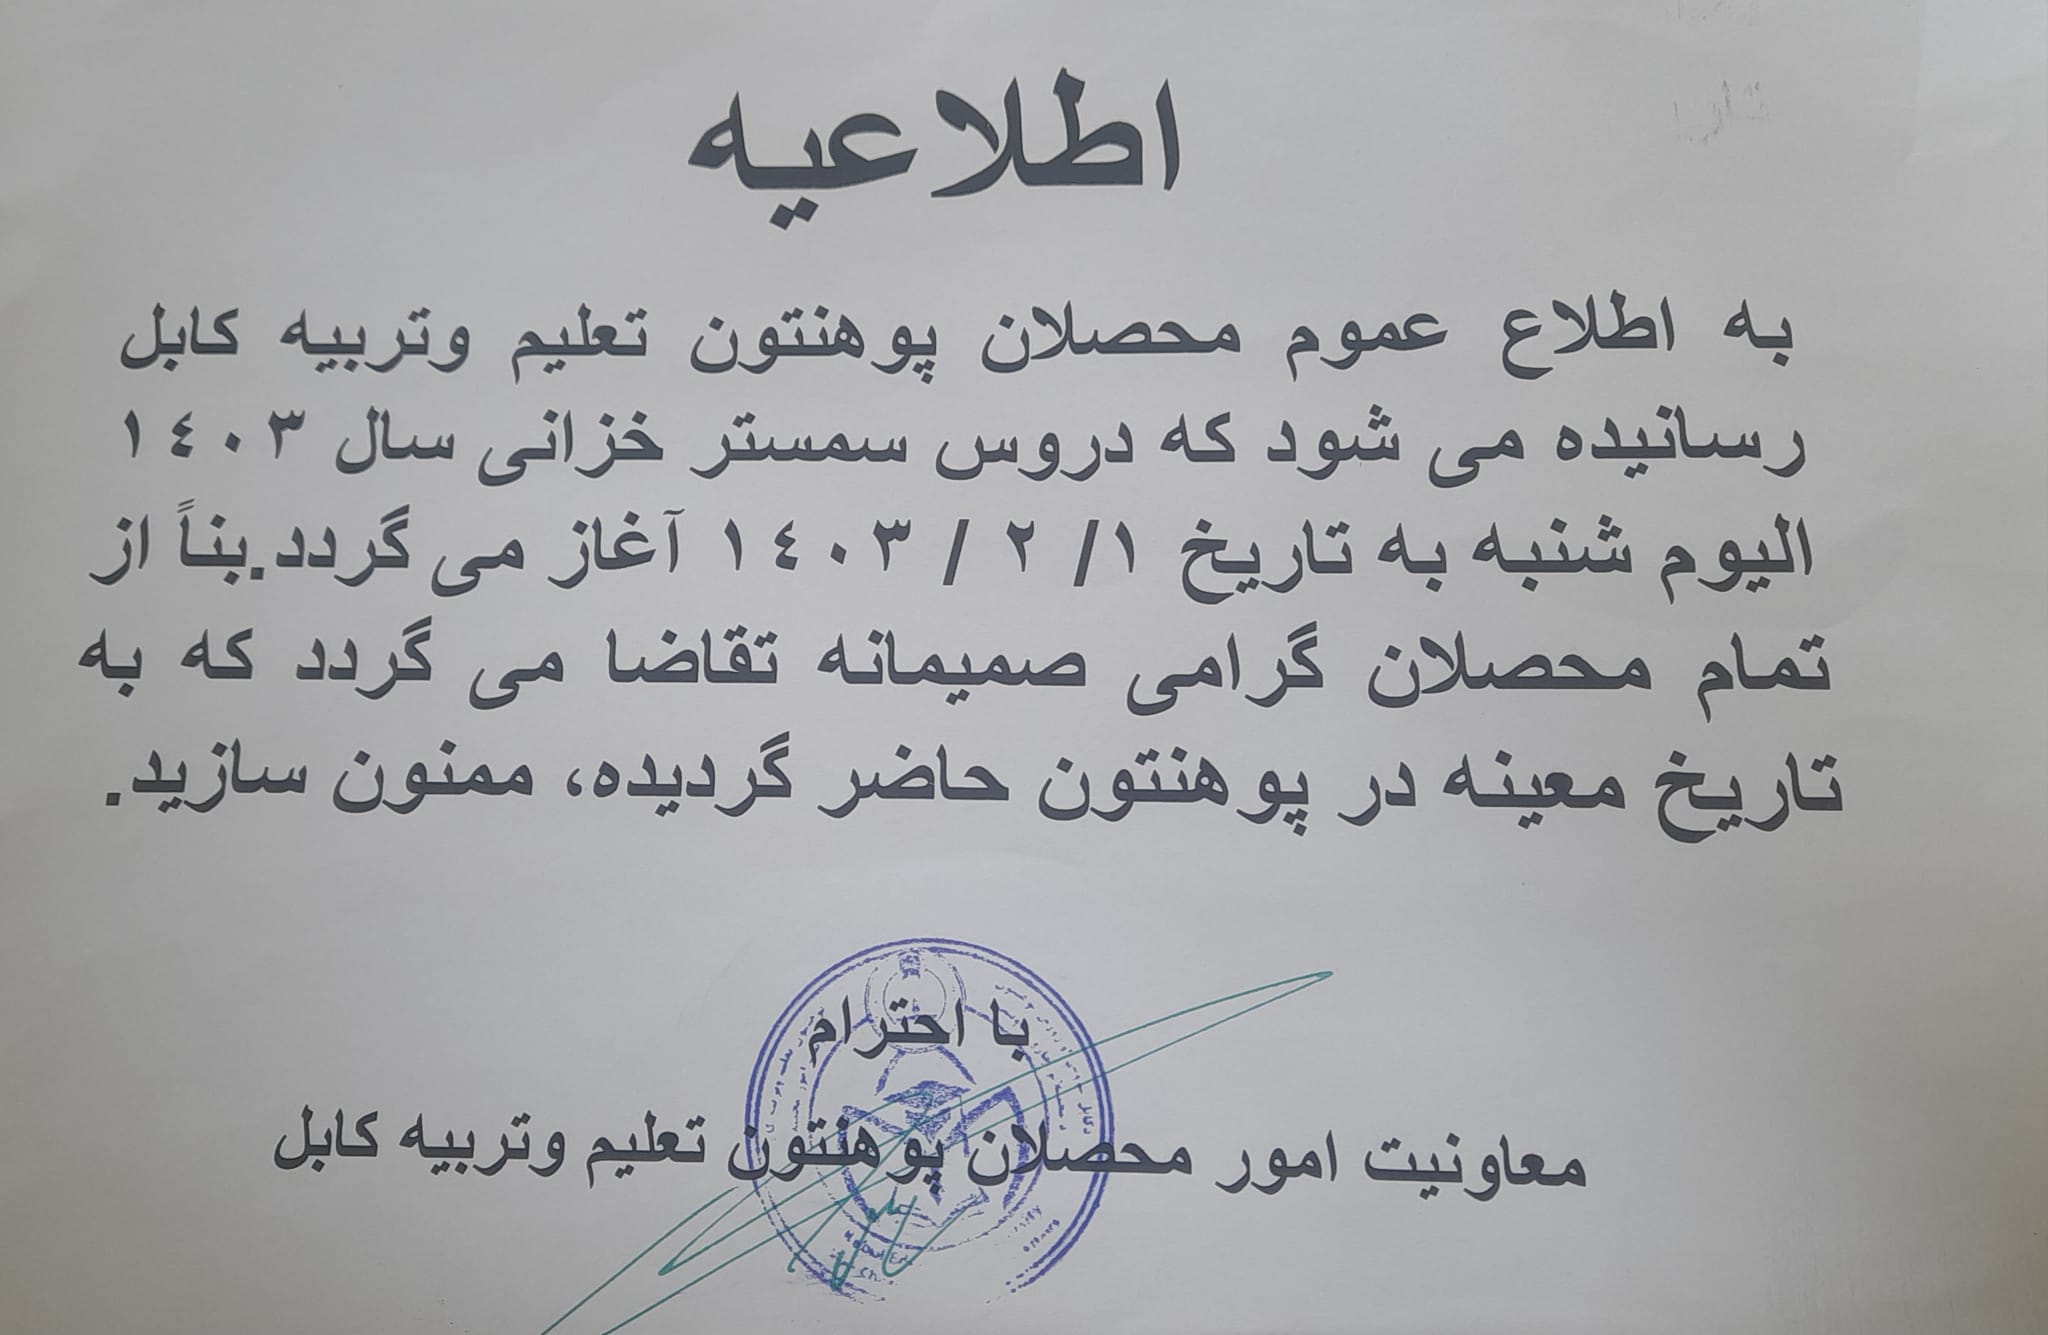 اطلاعیه
به اطلاع عموم محصلان پوهنتون تعلیم وتربیه کابل
رسانیده می شود که دروس سمستر خزانی سال ١٤٠٣
الیوم شنبه به تاریخ ١/ ٢ / ١٤٠٣ آغاز می گردد.بناً از
تمام محصلان گرامی صمیمانه تقاضا می گردد که به
تاریخ معینه در پوهنتون حاضر گردیده، ممنون سازید.
با احترام
معاونیت امور محصلان پوهنتون تعلیم وتربیه کابل